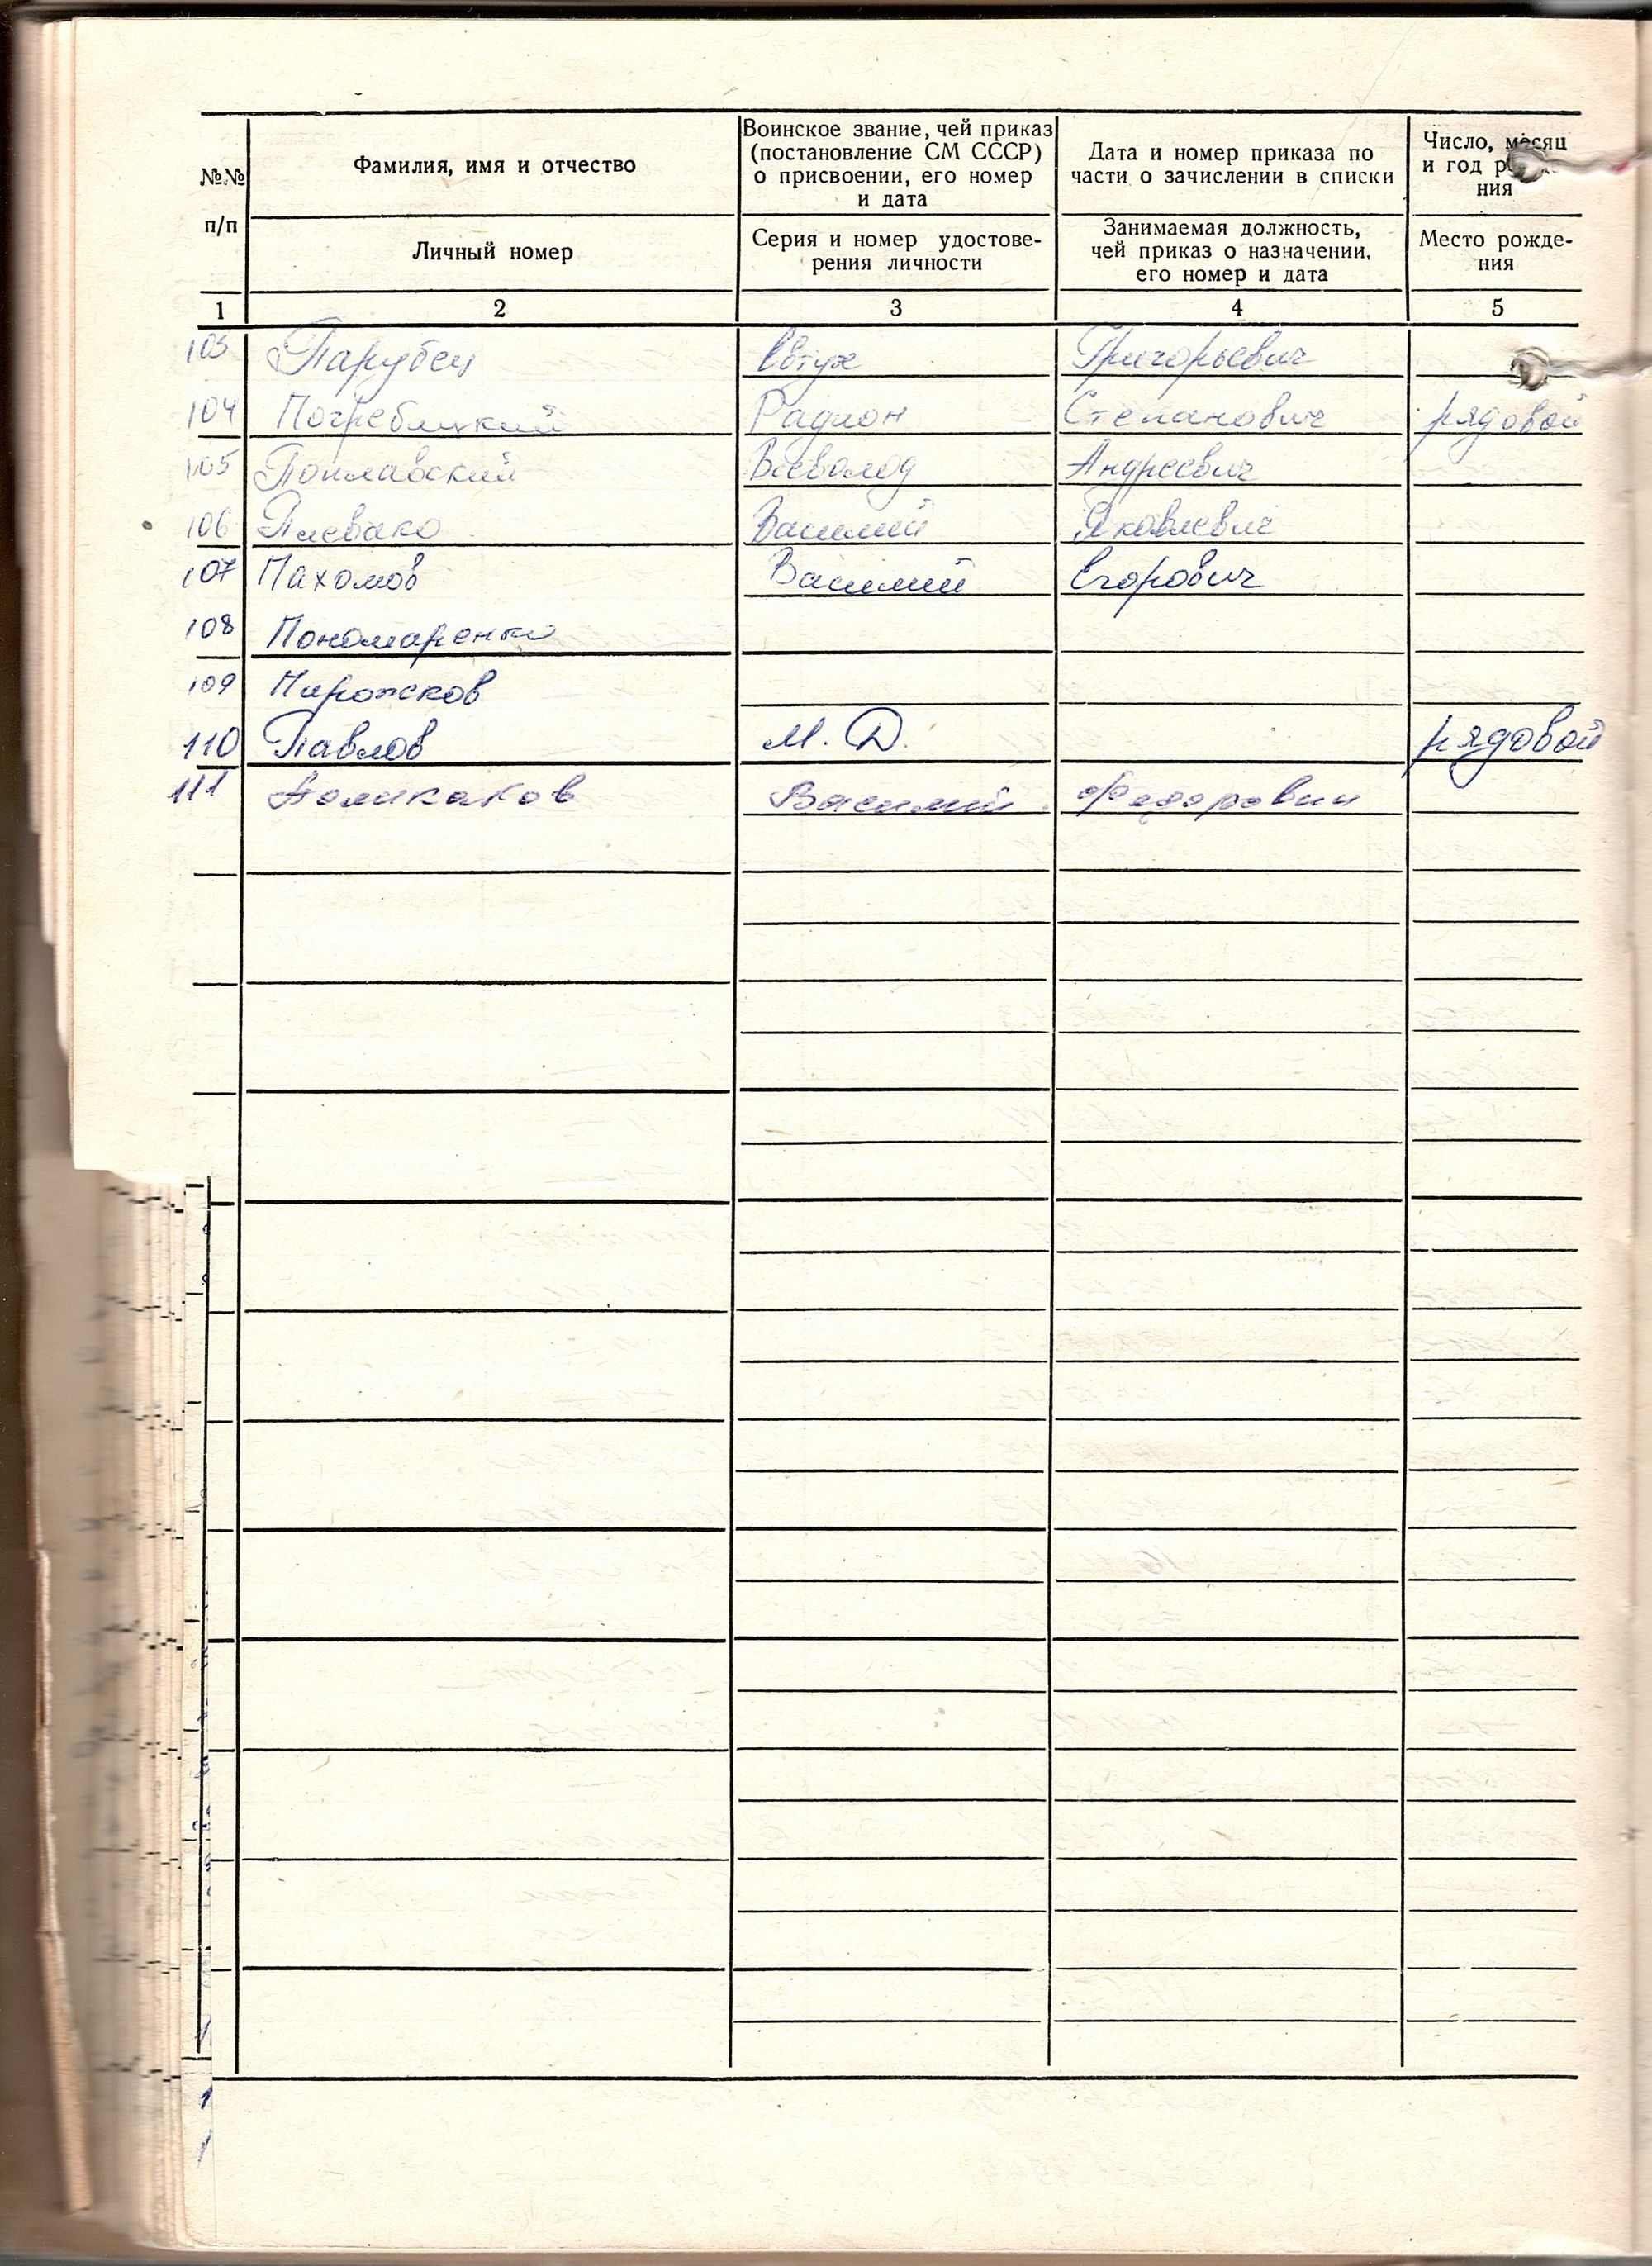 №№ п/п
Фамилия, имя и отчество
Личный номер
Воинское звание, чей приказ
(постановление СМ СССР)
о присвоении, его номер
и дата
Серия и номер удостове-
рения личности
Дата и номер приказа по
части о зачислении в списки
Занимаемая должность,
чей приказ о назначении,
его номер и дата
Число, месяц
и год
ния
Место рожде-
ния
1 2 3 4 5
103 Парубец Евтух Григорьевич
104 Погребицкий Радион Степанович рядовой
105 Поплавский Всеволод Андреевич
106 Плевако Василий Яковлевич
107 Пахомов Василий Егорович
108 Пономаренко
109 Пирожков
110 Павлов М. Д. рядовой
111 Василий Федорович